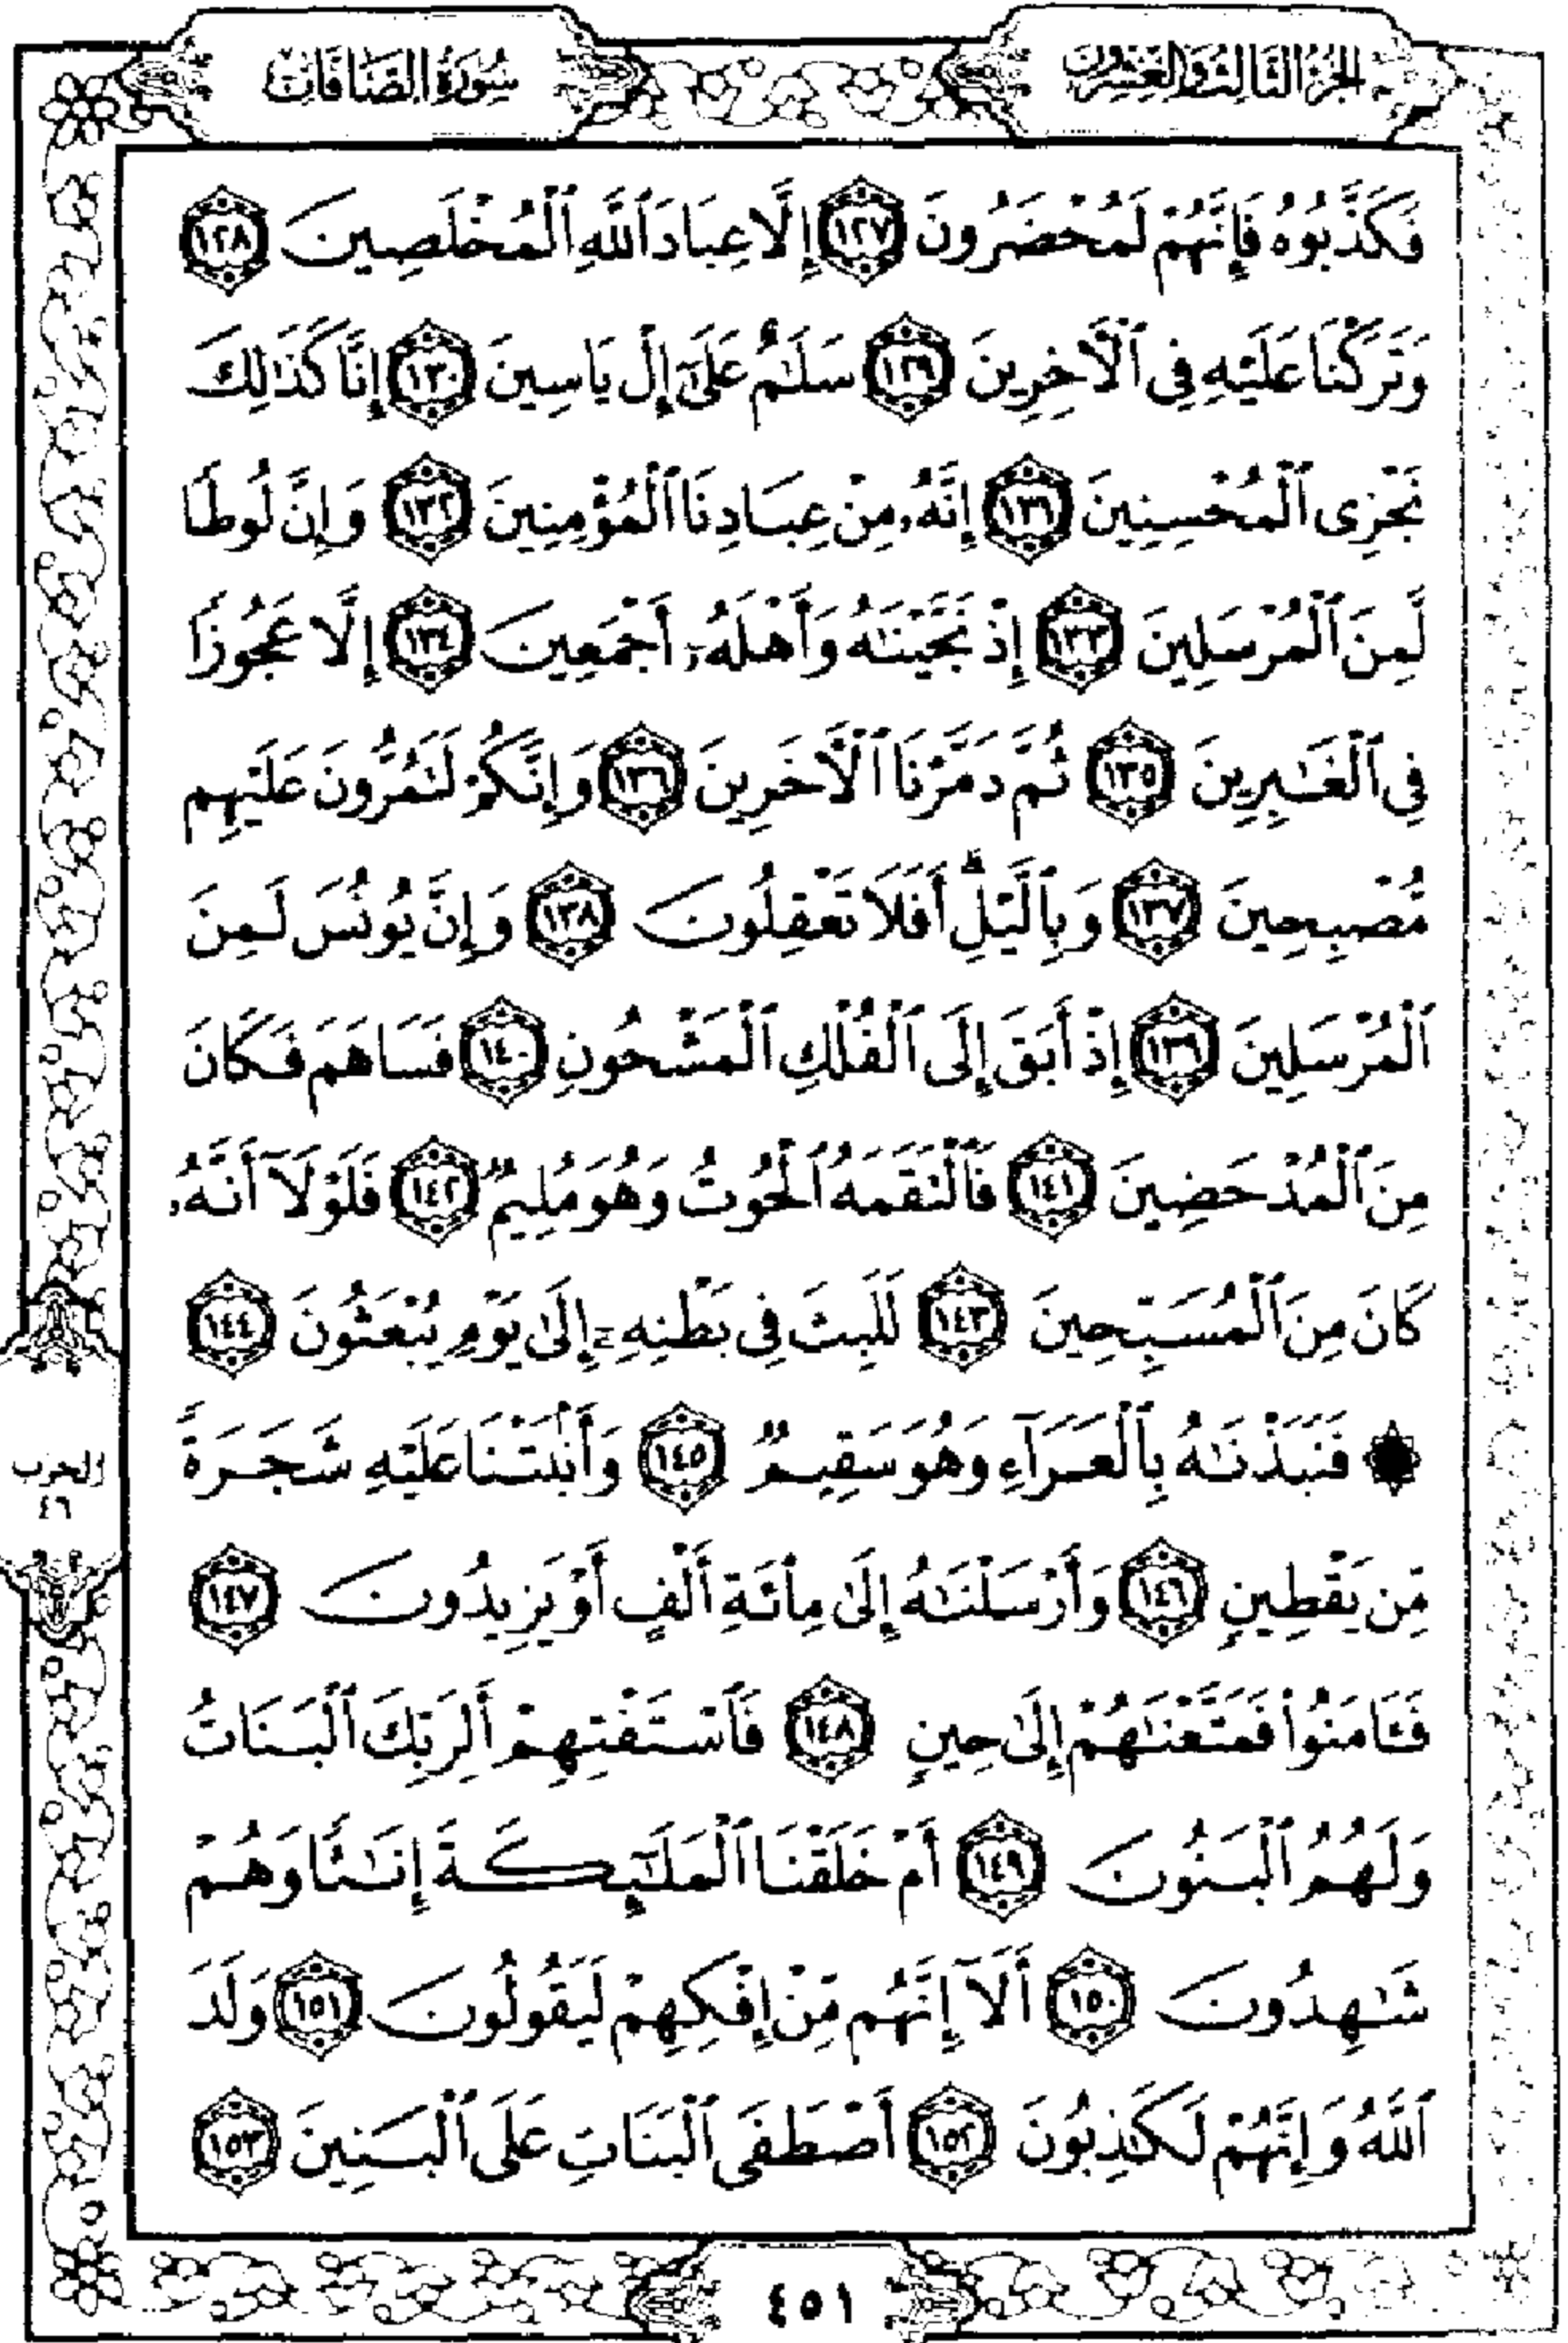 الجزء الثالث والعشرون
سورة الصافات
فَكَذَّبُوهُ فَإِنَّهُمْ لَمُحْضَرُونَ ١٢٧ إِلَّا عِبَادَ ٱللَّهِ ٱلْمُخْلَصِينَ ١٢٨
وَتَرَكْنَا عَلَيْهِ فِى ٱلْـَٔاخِرِينَ ١٢٩ سَلَـٰمٌ عَلَىٰٓ إِلْ يَاسِينَ ١٣٠ إِنَّا كَذَٰلِكَ
نَجْزِى ٱلْمُحْسِنِينَ ١٣١ إِنَّهُۥ مِنْ عِبَادِنَا ٱلْمُؤْمِنِينَ ١٣٢ وَإِنَّ لُوطًا
لَّمِنَ ٱلْمُرْسَلِينَ ١٣٣ إِذْ نَجَّيْنَـٰهُ وَأَهْلَهُۥٓ أَجْمَعِينَ ١٣٤ إِلَّا عَجُوزًا
فِى ٱلْغَـٰبِرِينَ ١٣٥ ثُمَّ دَمَّرْنَا ٱلْـَٔاخَرِينَ ١٣٦ وَإِنَّكُمْ لَتَمُرُّونَ عَلَيْهِم
مُّصْبِحِينَ ١٣٧ وَبِٱلَّيْلِ ۗ أَفَلَا تَعْقِلُونَ ١٣٨ وَإِنَّ يُونُسَ لَمِنَ
ٱلْمُرْسَلِينَ ١٣٩ إِذْ أَبَقَ إِلَى ٱلْفُلْكِ ٱلْمَشْحُونِ ١٤٠ فَسَاهَمَ فَكَانَ
مِنَ ٱلْمُدْحَضِينَ ١٤١ فَٱلْتَقَمَهُ ٱلْحُوتُ وَهُوَ مُلِيمٌ ١٤٢ فَلَوْلَآ أَنَّهُۥ
كَانَ مِنَ ٱلْمُسَبِّحِينَ ١٤٣ لَلَبِثَ فِى بَطْنِهِۦٓ إِلَىٰ يَوْمِ يُبْعَثُونَ ١٤٤
۞ فَنَبَذْنَـٰهُ بِٱلْعَرَآءِ وَهُوَ سَقِيمٌ ١٤٥ وَأَنۢبَتْنَا عَلَيْهِ شَجَرَةً
مِّن يَقْطِينٍ ١٤٦ وَأَرْسَلْنَـٰهُ إِلَىٰ مِا۟ئَةِ أَلْفٍ أَوْ يَزِيدُونَ ١٤٧
فَـَٔامَنُوا۟ فَمَتَّعْنَـٰهُمْ إِلَىٰ حِينٍ ١٤٨ فَٱسْتَفْتِهِمْ أَلِرَبِّكَ ٱلْبَنَاتُ
وَلَهُمُ ٱلْبَنُونَ ١٤٩ أَمْ خَلَقْنَا ٱلْمَلَـٰٓئِكَةَ إِنَـٰثًا وَهُمْ
شَـٰهِدُونَ ١٥٠ أَلَآ إِنَّهُم مِّنْ إِفْكِهِمْ لَيَقُولُونَ ١٥١ وَلَدَ
ٱللَّهُ وَإِنَّهُمْ لَكَـٰذِبُونَ ١٥٢ أَصْطَفَى ٱلْبَنَاتِ عَلَى ٱلْبَنِينَ ١٥٣
الحزب
٤٦
٤٥١